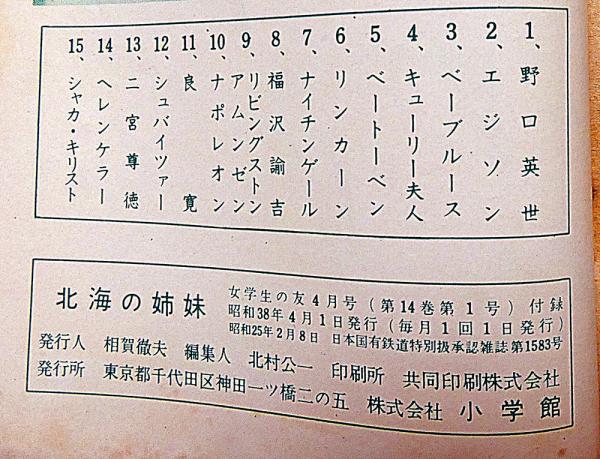 1、野口英世
2、エジソン
3、ベーブルース
4、キューリー夫人
5、ベートーベン
6、リンカーン
7、ナイチンゲール
8、福沢諭吉
9、リビングストン
アムンゼン
10、ナポレオン
11、良寛
12、シュバイツァー
13、二宮尊徳
14、ヘレンケラー
15、シャカ・キリスト
北海の姉妹
女学生の友4月号(第14巻第1号)付録
昭和38年4月1日発行(毎月1回1日発行)
昭和25年2月8日 日本国有鉄道特別扱承認雑誌第1583号
発行人 相賀徹夫 編集人 北村公一 印刷所 共同印刷株式会社
発行所 東京都千代田区神田一ツ橋二の五 株式会社 小学館